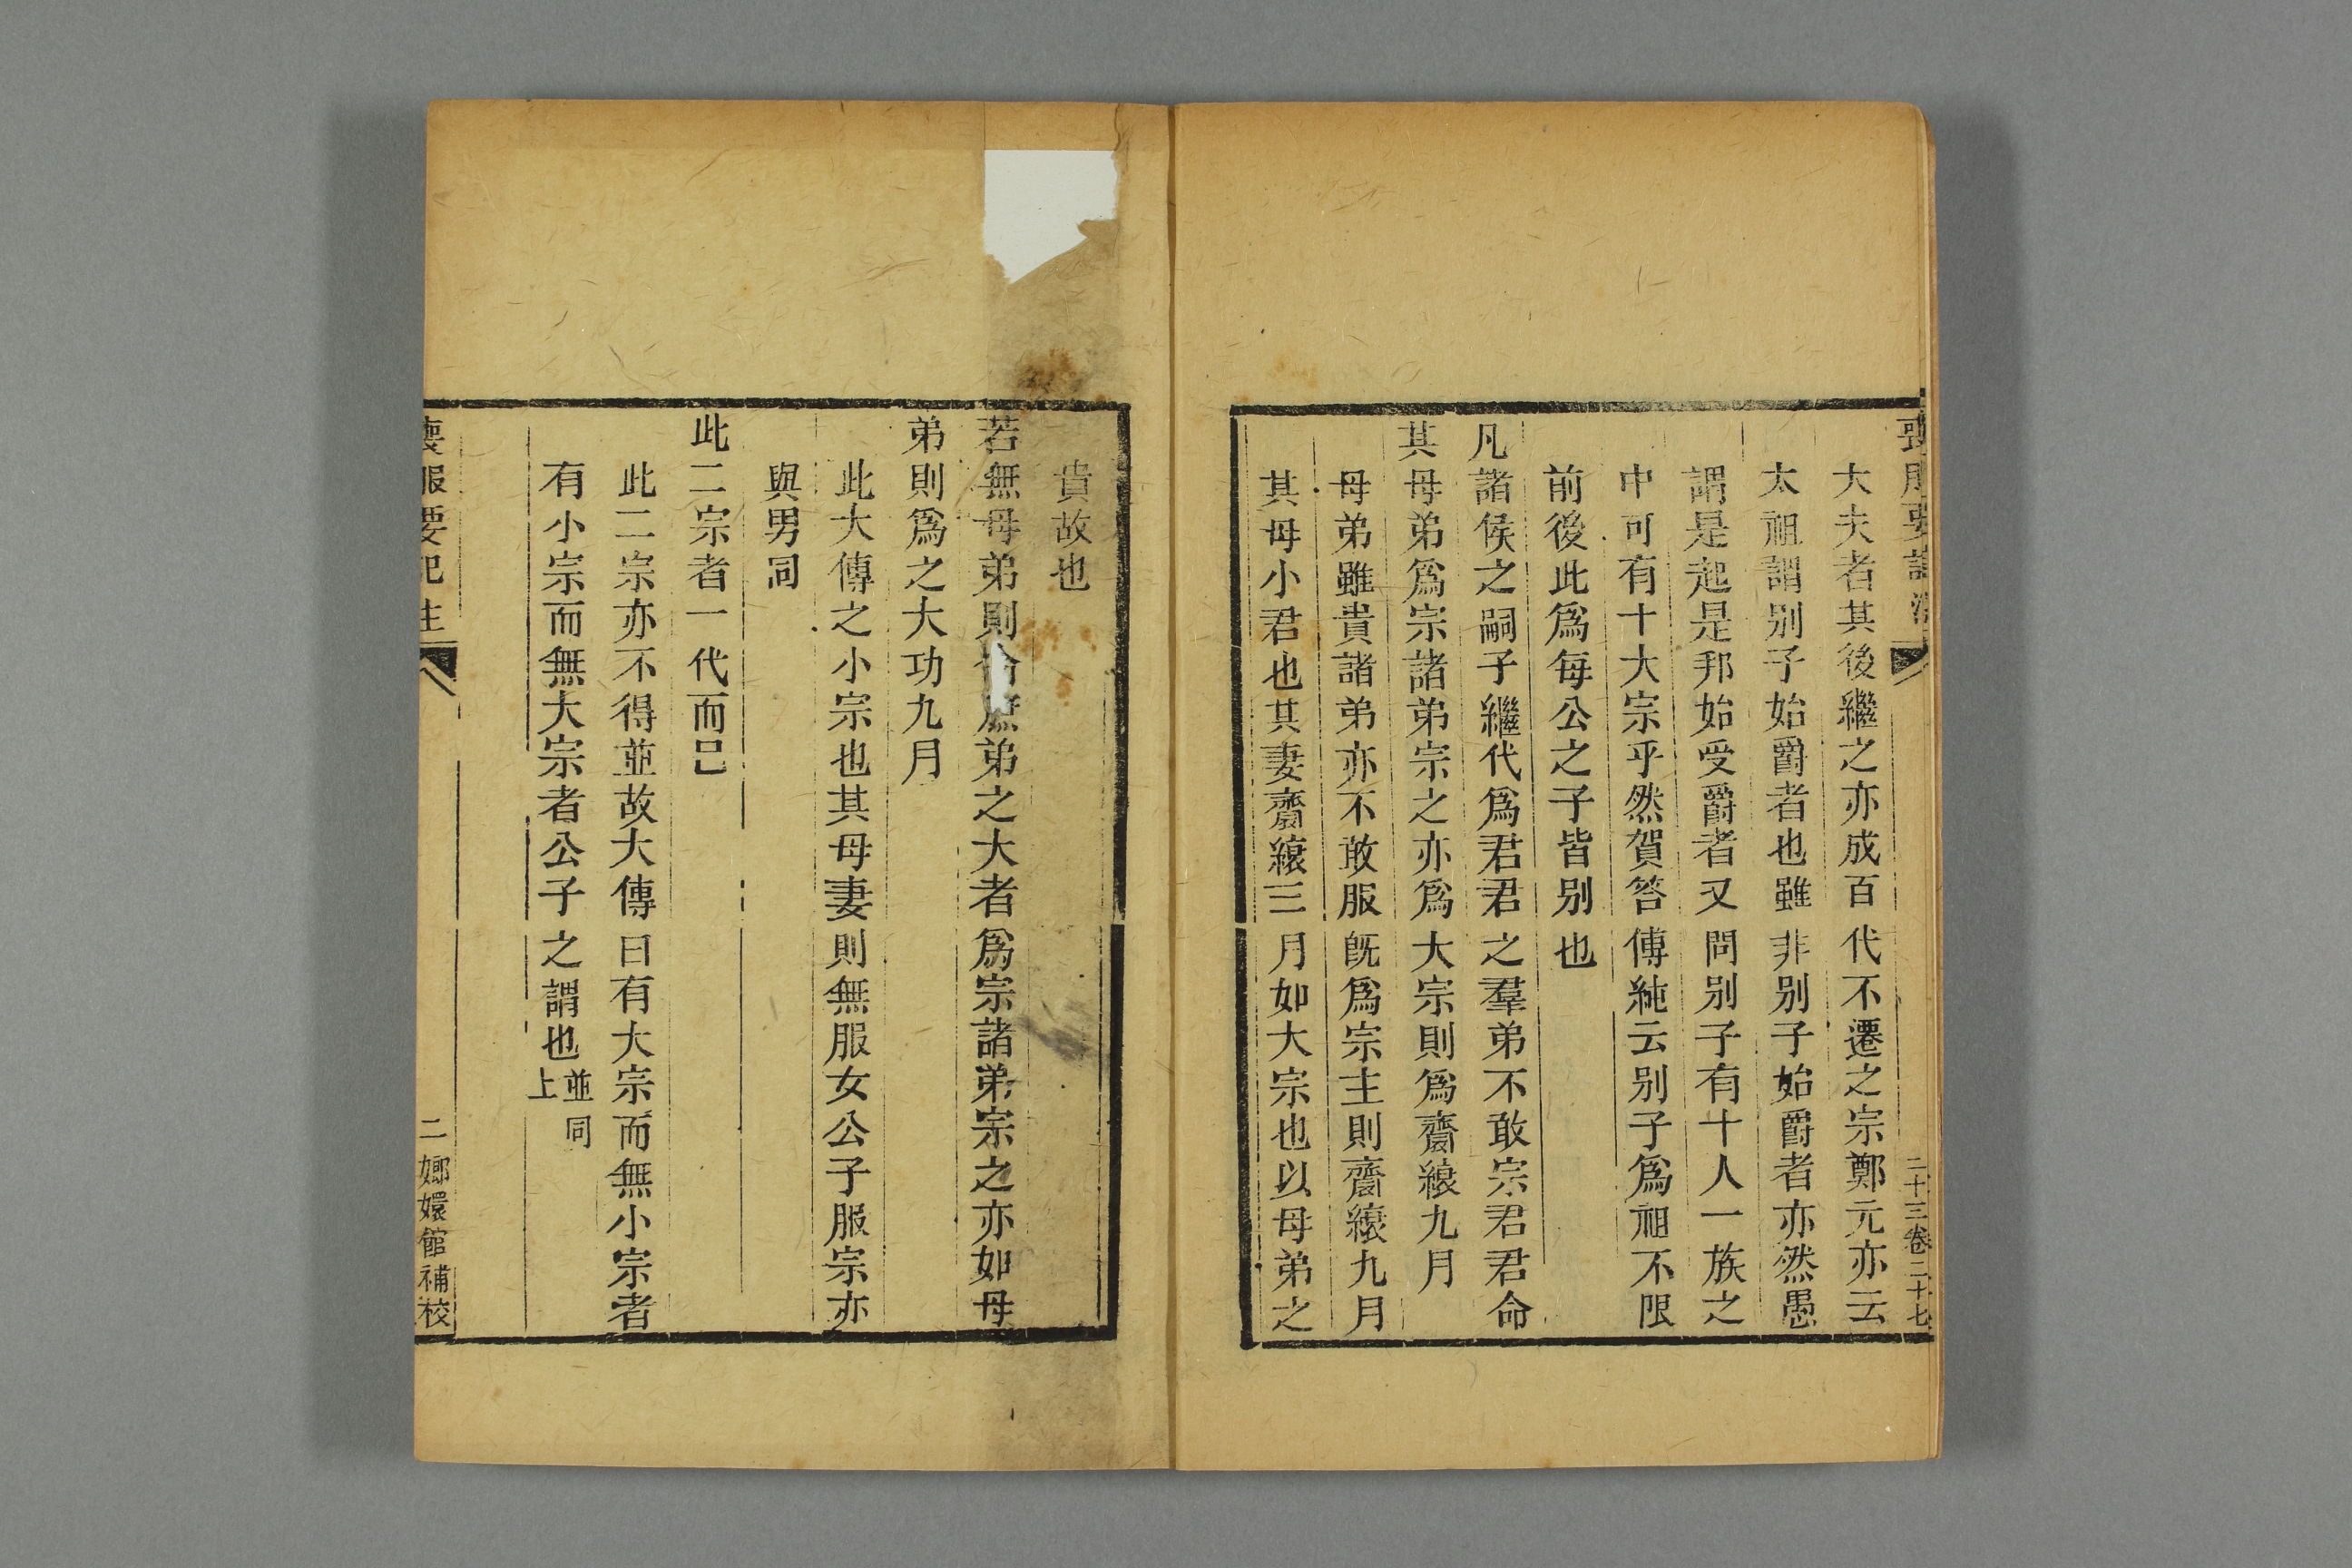 喪服要記注
二十三卷二十七
大夫者其後繼之亦成百代不遷之宗鄭元亦云
太祖謂别子始爵者也雖非别子始爵者亦然愚
謂是起是邦始受爵者又問别子有十人一族之
中可有十大宗乎然賀答傳純云别子爲祖不限
前後此爲每公之子皆别也
凡諸侯之嗣子繼代爲君君之羣弟不敢宗君君命
其母弟爲宗諸弟宗之亦爲大宗則爲齋縗九月
母弟雖貴諸弟亦不敢服旣爲宗主則齋縗九月
其母小君也其妻齋縗三月如大宗也以母弟之
貴故也
若無母弟則庶弟之大者爲宗諸弟宗之亦如母
弟則爲之大功九月
此大傳之小宗也其母妻則無服女公子服宗亦
與男同
此二宗者一代而已
此二宗亦不得並故大傳曰有大宗而無小宗者
有小宗而無大宗者公子之謂也並同上
喪服要記注
二
嫏嬛館補校